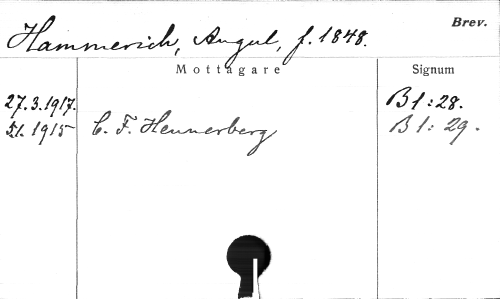 Brev.
Hammerich, Angul, f. 1848.
Mottagare Signum
27.3.1917. B1:28.
5.1.1915 C. F. Hennerberg B1:29.